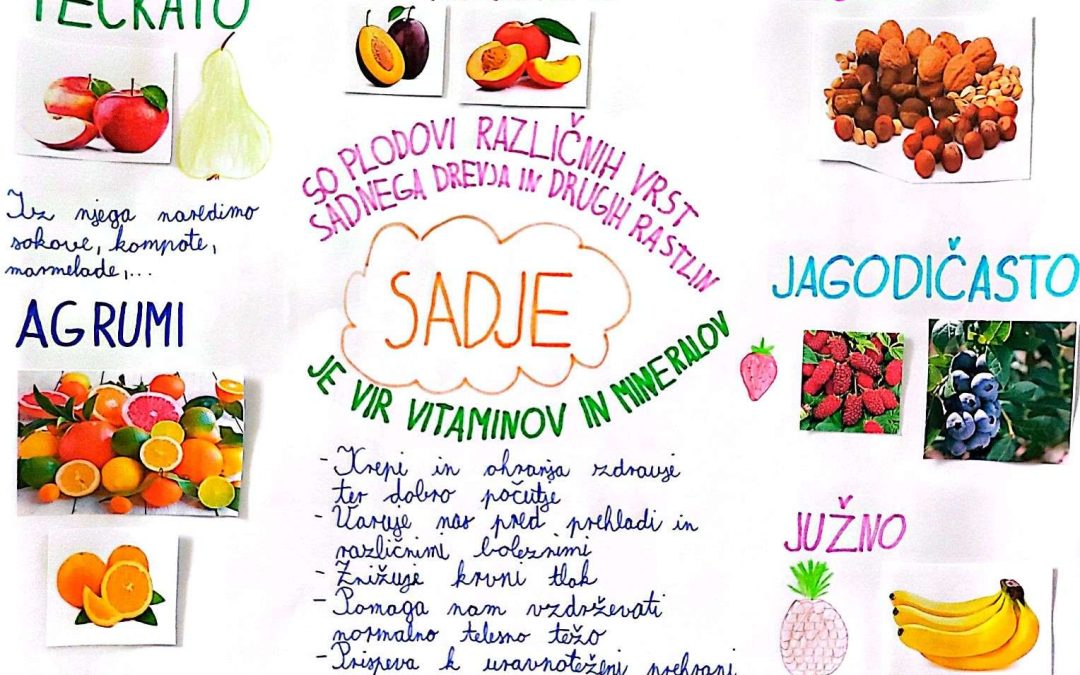 PEČKATO
Iz njega naredimo
sokove, kompote,
marmelade,...
AGRUMI
SO PLODOVI RAZLIČNIH VRST
SADNEGA DREVJA IN DRUGIH RASTLIN
SADJE
JE VIR VITAMINOV IN MINERALOV
- Krepi in ohranja zdravje
ter dobro počutje
- Varuje nas pred prehladi in
različnimi boleznimi
- Znižuje krvni tlak
- Pomaga nam vzdrževati
normalno telesno težo
- Prispeva k uravnoteženi prehrani
JAGODIČASTO
JUŽNO